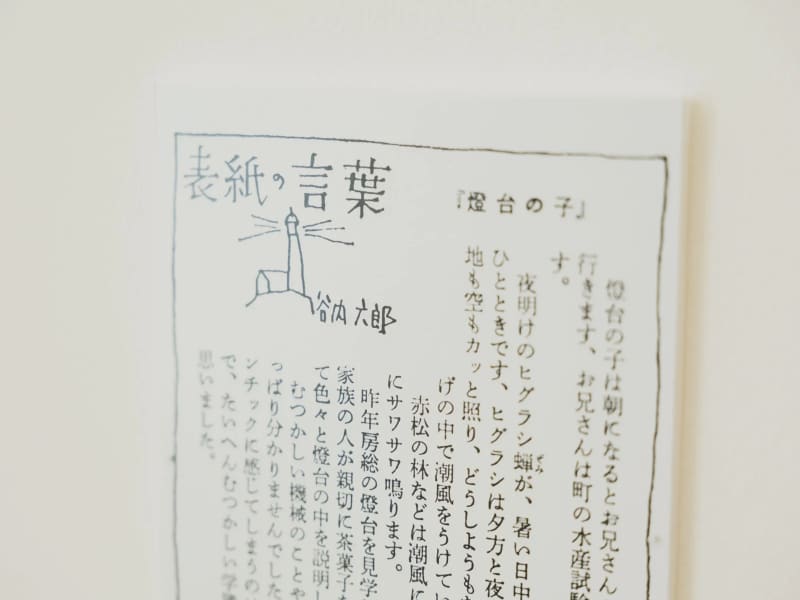 表紙の言葉
谷内六郎
『燈台の子』
燈台の子は朝になるとお兄さん
行きます、お兄さんは町の水産試験
す。
夜明けのヒグラシ蝉が、暑い日中
ひとときです、ヒグラシは夕方と夜
地も空もカッと照り、どうしようも
げの中で潮風をうけてい
赤松の林などは潮風に
にサワサワ鳴ります。
昨年房総の燈台を見学
家族の人が親切に茶菓子
て色々と燈台の中を説明し
むつかしい機械のことや
っぱり分かりませんでした
ンチックに感じてしまうの
で、たいへんむつかしい学
思いました。